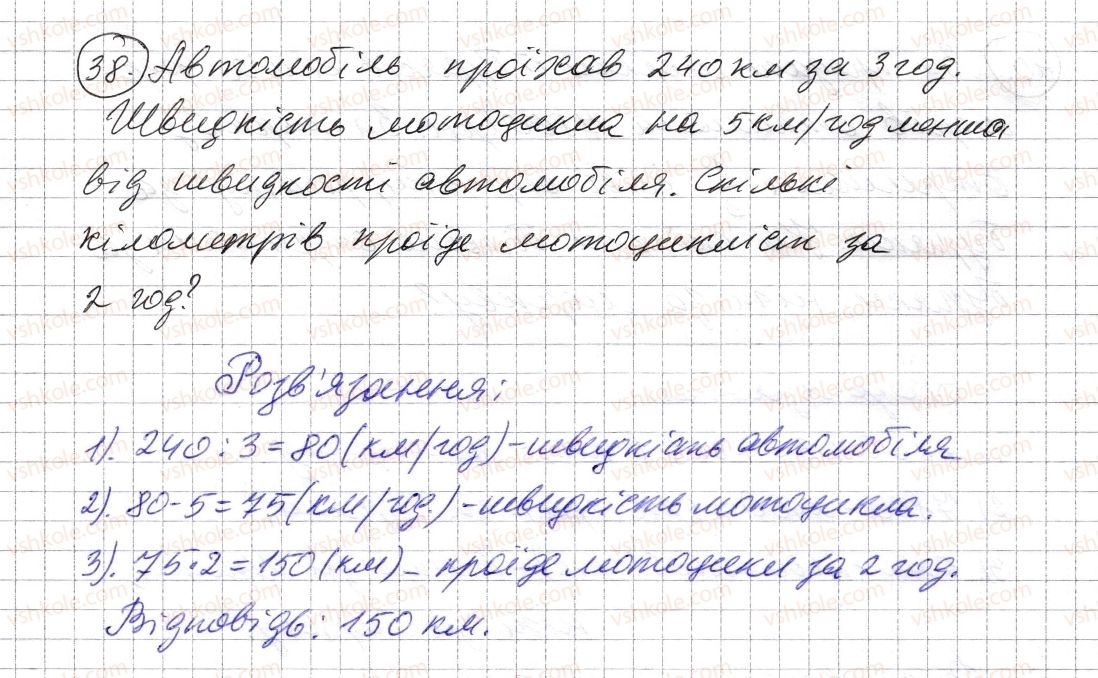 38. Автомобіль проїхав 240 км за 3 год.
Швидкість мотоцикла на 5 км/год менша
від швидкості автомобіля. Скількі
кілометрів проїде мотоцикліст за
2 год?
Розв'язання:
1). 240 : 3 = 80 (км/год) - швидкість автомобіля
2). 80 - 5 = 75 (км/год) - швидкість мотоцикла.
3). 75 · 2 = 150 (км) - проїде мотоцикл за 2 год.
Відповідь: 150 км.